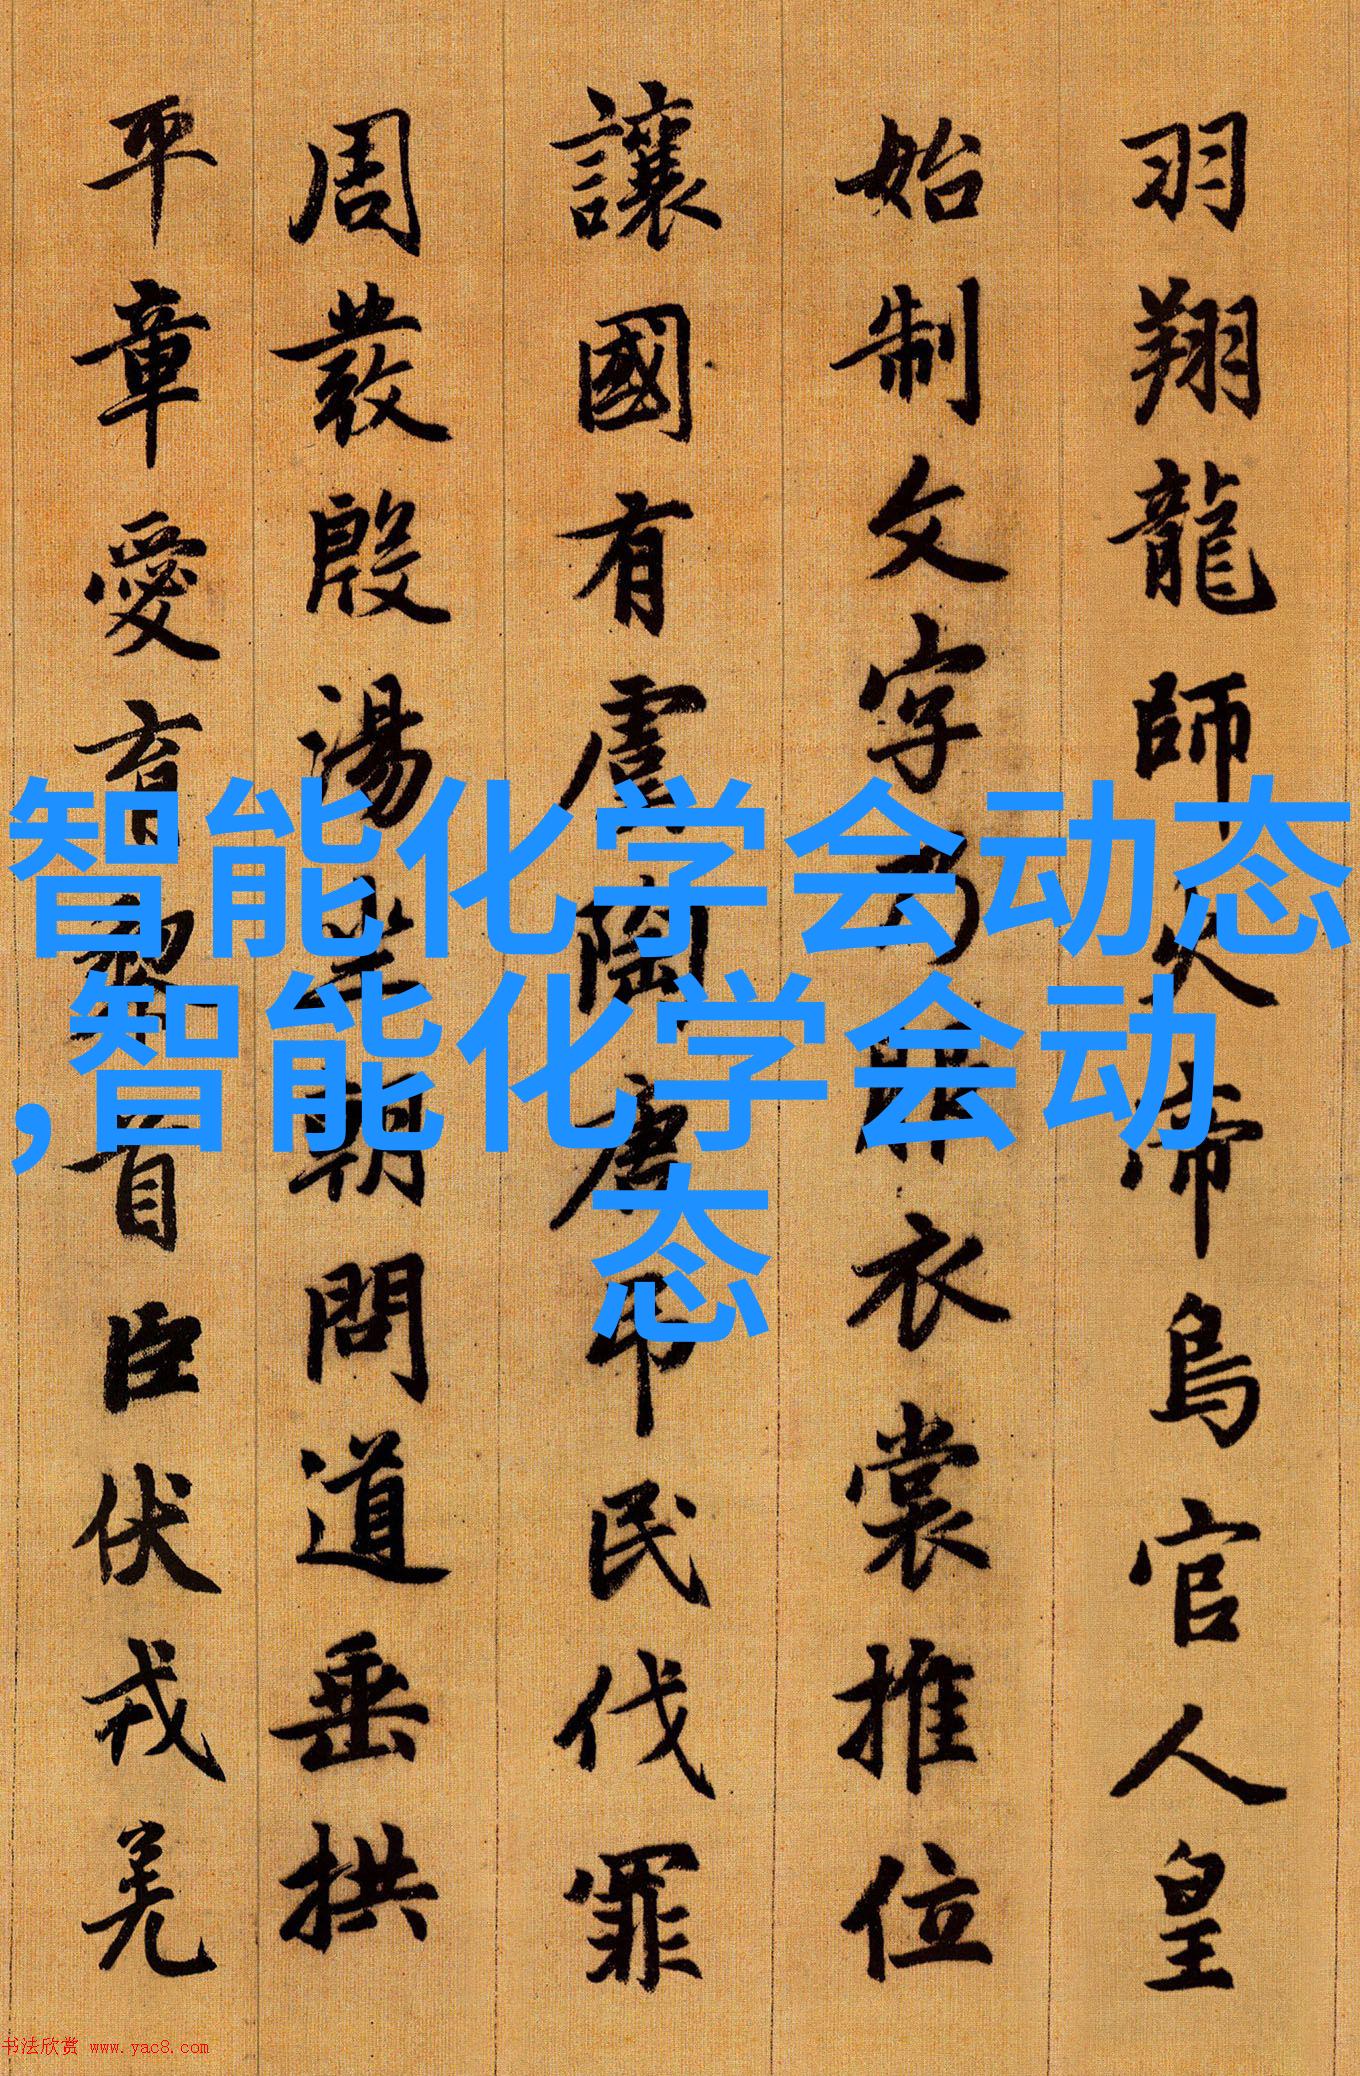 羽翔龍師火帝鳥官人皇
始制文字乃服衣裳推位
讓國有虞陶唐弔民伐罪
周發殷湯坐朝問道垂拱
平章愛育黎首臣伏戎羌
智能化学会动态
,智能化学会动
态
书法欣赏 www.yac8.com